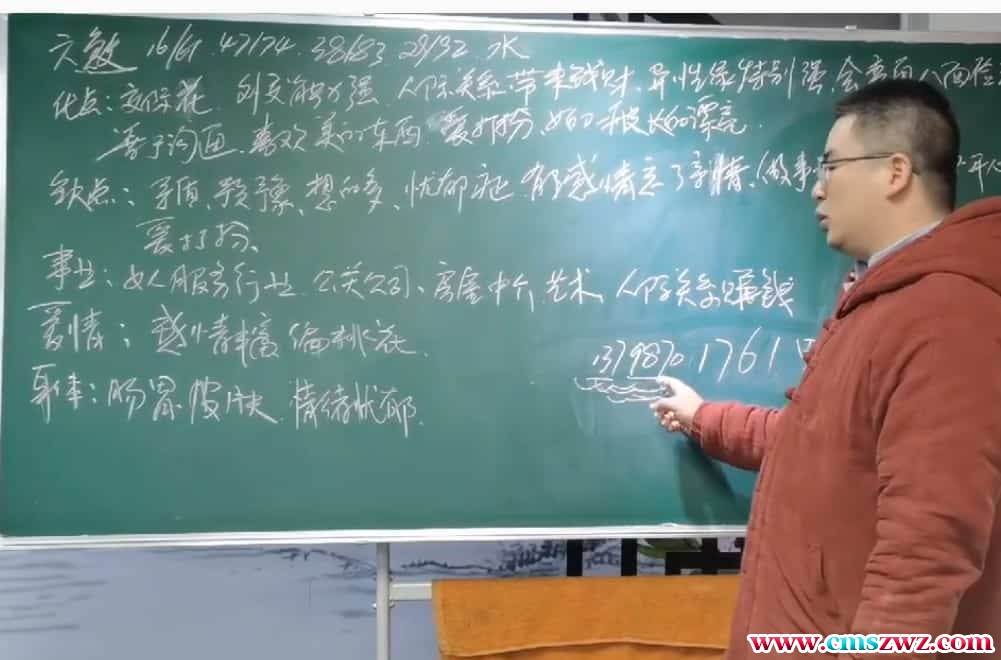 六煞 16/61 . 47/74 . 38/83 29/92 . 水
优点：交际花 . 外交能力强 . 人际关系带来钱财 . 异性缘特别强 . 会
善于沟通、喜欢美的东西 . 爱打扮、
缺点：矛盾、犹豫、想的多、忧郁症 . 有感情忘了亲情、做事
爱打扮、
事业：女人服务行业 . 公关公司、房屋中介、艺术、人际关系赚钱
爱情：感情丰富 偏桃花 .
1379870 . 1761
身体：肠胃、皮肤 . 情绪忧郁 .
www.cmszwz.com